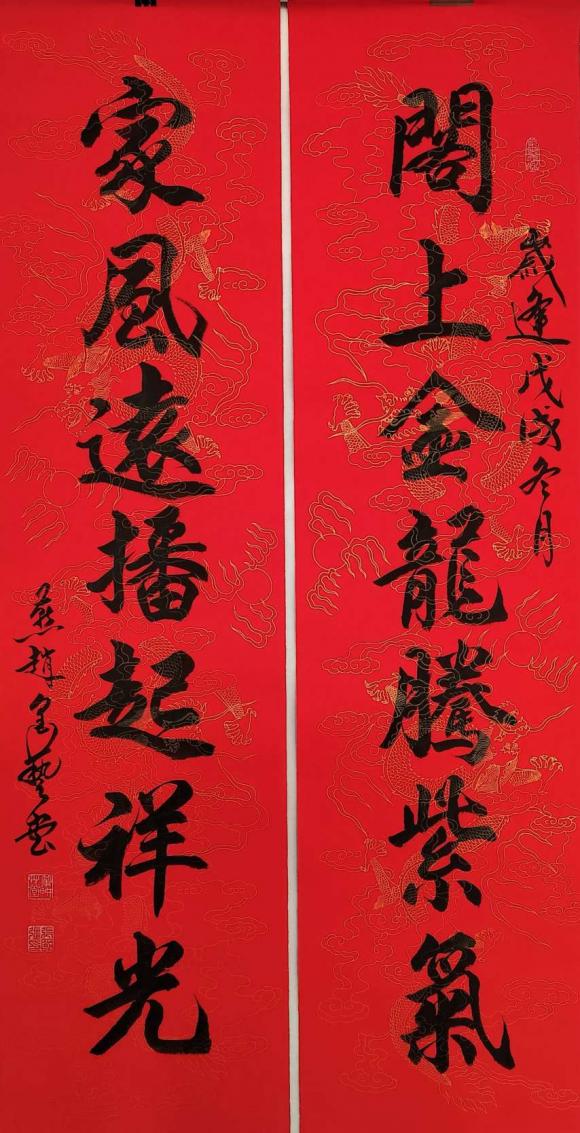 歲逢戊戌冬月
閣上金龍騰紫氣
家風遠播起祥光
燕趙